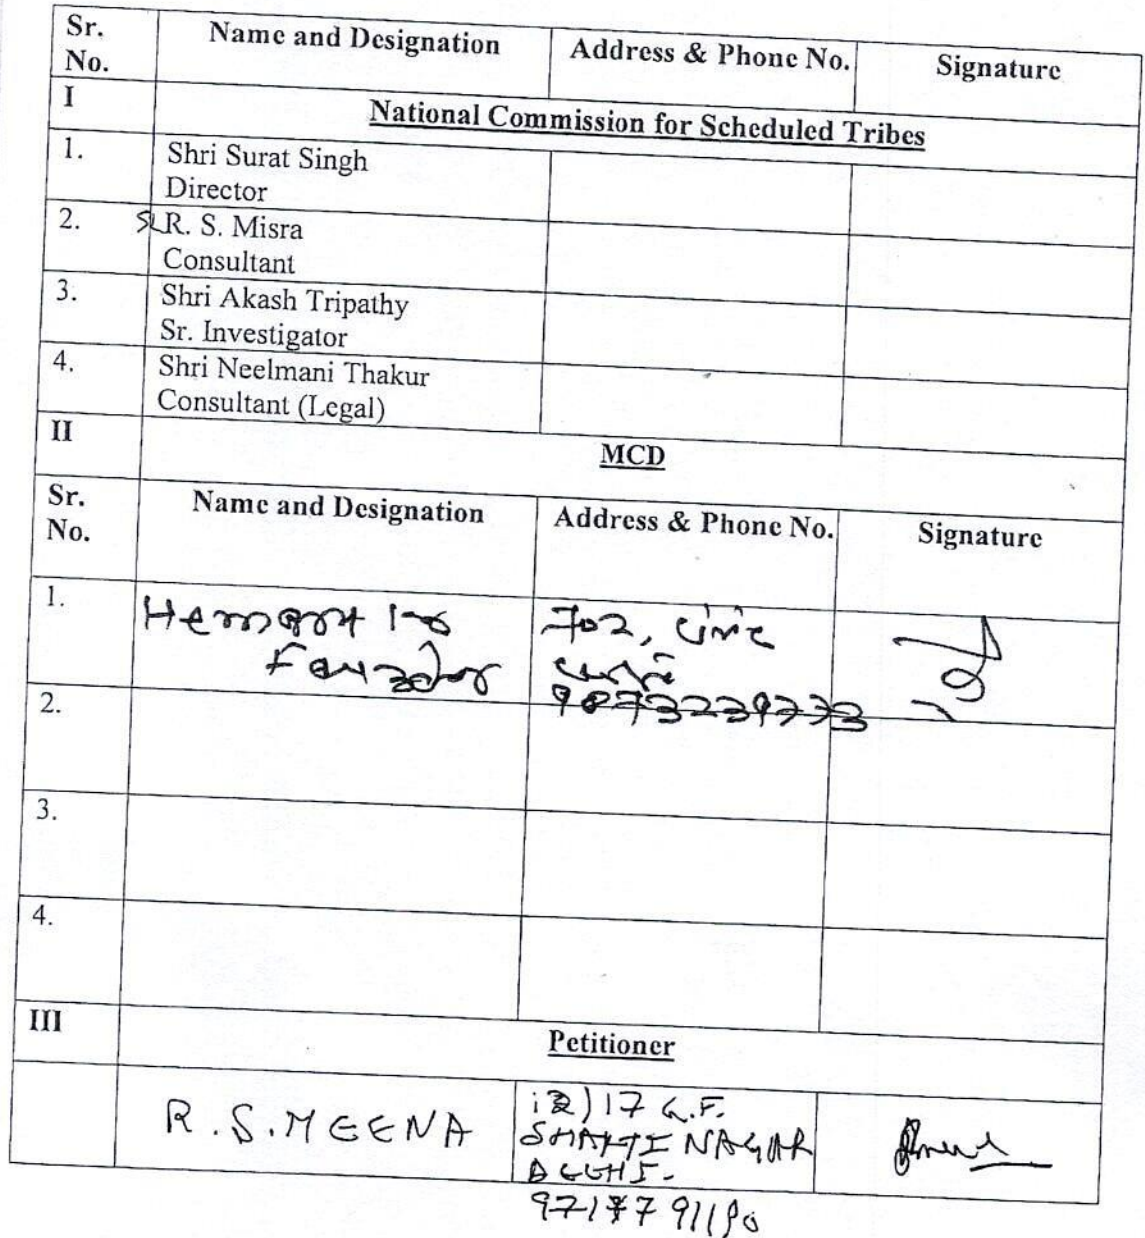 Sr. No. Name and Designation Address & Phone No. Signature
I National Commission for Scheduled Tribes
1. Shri Surat Singh
Director
2. R. S. Misra
Consultant
3. Shri Akash Tripathy
Sr. Investigator
4. Shri Neelmani Thakur
Consultant (Legal)
II MCD
Sr. No. Name and Designation Address & Phone No. Signature
1. Hemant Kr 702, Civic
Fauzdar
9873239773
2.
3.
4.
III Petitioner
R.S. MEENA 17 G.F.
SHAKTI NAGAR
DELHI.